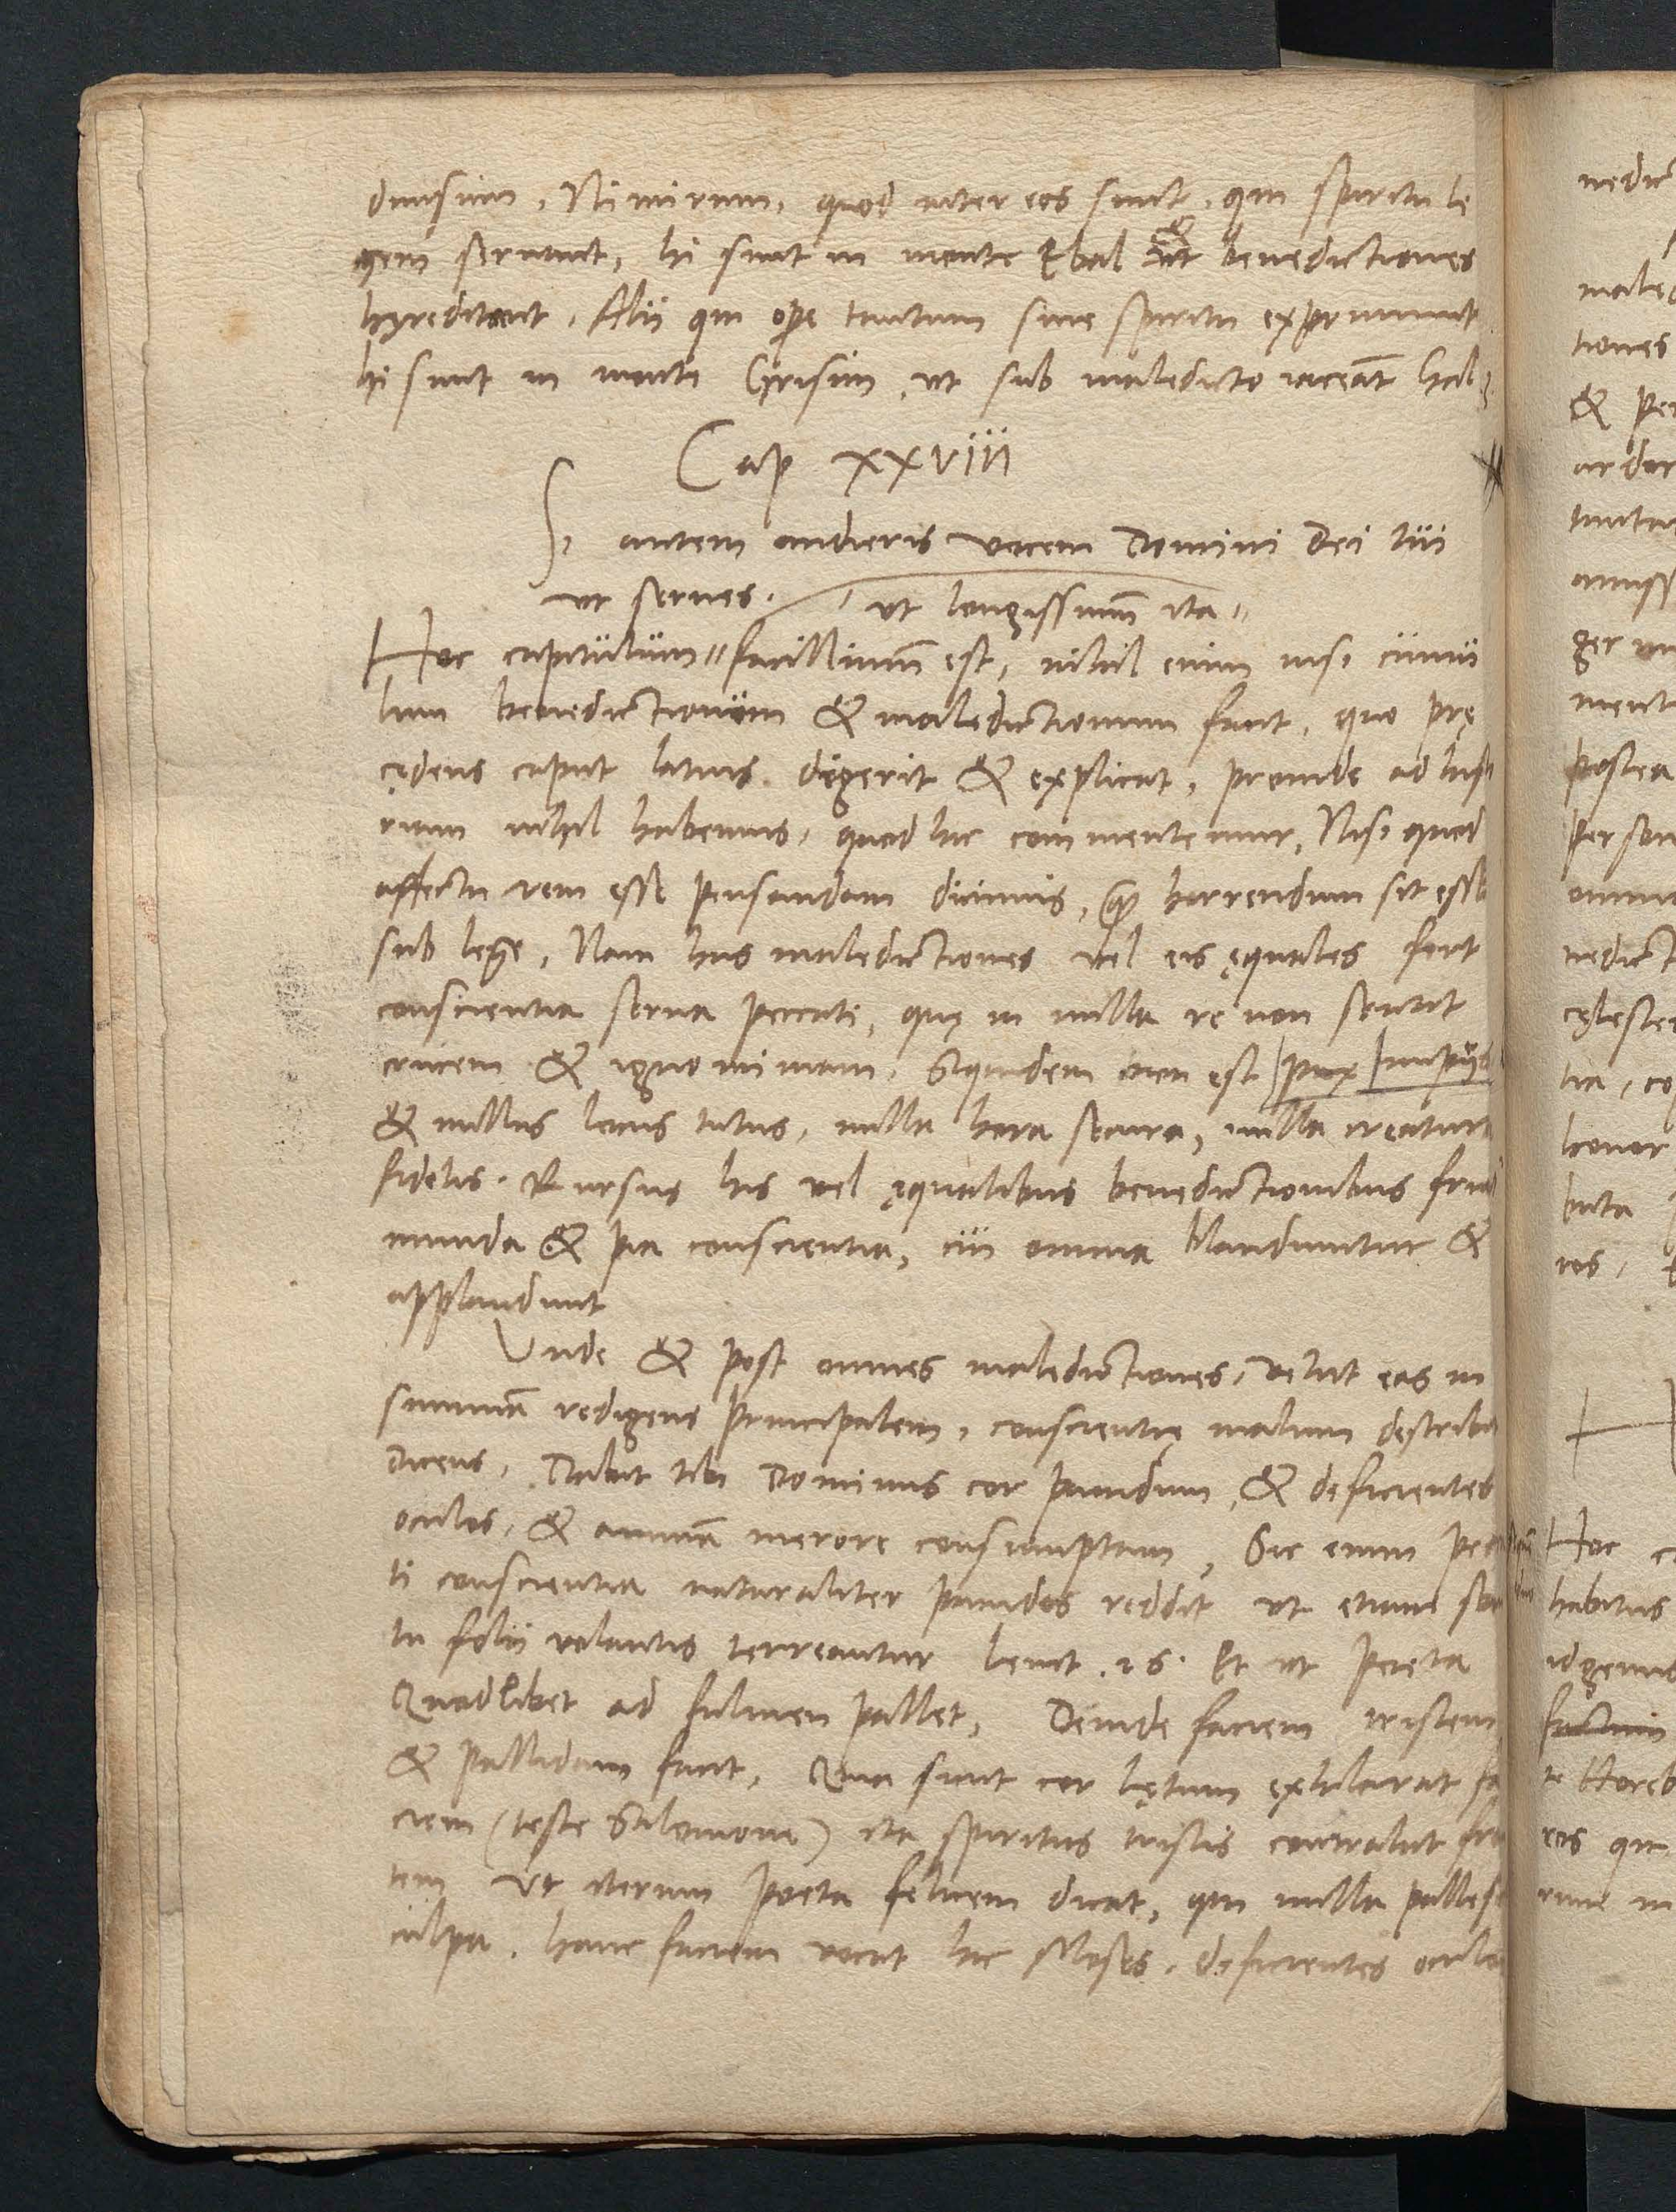 diuisum, Nimirum, quod inter eos sunt, qui spiritu le
gem seruant, hi sunt in monte Ebal & benedictiones
hęreditent, Alii qui ope tantum sine spiritu exprimunt
hi sunt in monte Grisim, ut sub maledicto iaceant
Cap XXVIII
Si autem audieris vocem Domini Dei tui
ut serues.
ut longissimū ita
Hoc capitulum facillimū est, nihil enim nisi cumu
lum benedictionum & maledictionum facit, quo prę
cędens caput latius digerit & explicat, proinde ad
rium nihil habemus, quod hic commentemur, Nisi quod
affectu rem esse pensandam dicimus, horrendum sit esse
sub lege, Nam has maledictiones vel eis ęquales fert
conscientia serua peccati, quę in nulla re non sentit
crucem & ignominiam, Siquidem non est pax impijs
& nullus locus tutus, nulla hora secura, nulla creatura
fidelis. Rursus his vel ęqualibus benedictionibus
munda & pia conscientia, cui omnia blandiuntur &
applaudunt
Vnde & post omnes maledictiones, velut eas in
summā redigens principalem, conscientię malum describit
dicens, Dabit tibi Dominus cor pauidum, & deficientes
oculos, & animā merore consumptam, Sic enim pec
ti conscientia naturaliter pauidos reddit ut etiam
tu folii volantis terreantur Leuit. 26. Et ut Poeta
Quodlibet ad fulmen pallet, Deinde faciem tristem
& pallidam facit, Quia sicut cor lętum exhilarat fa
ciem (teste Salomone) ita spiritus tristis contrahit
tem Vt iterum Poeta felicem dicat, qui nulla
culpa. hanc faciem vocat hic Moses. deficientes